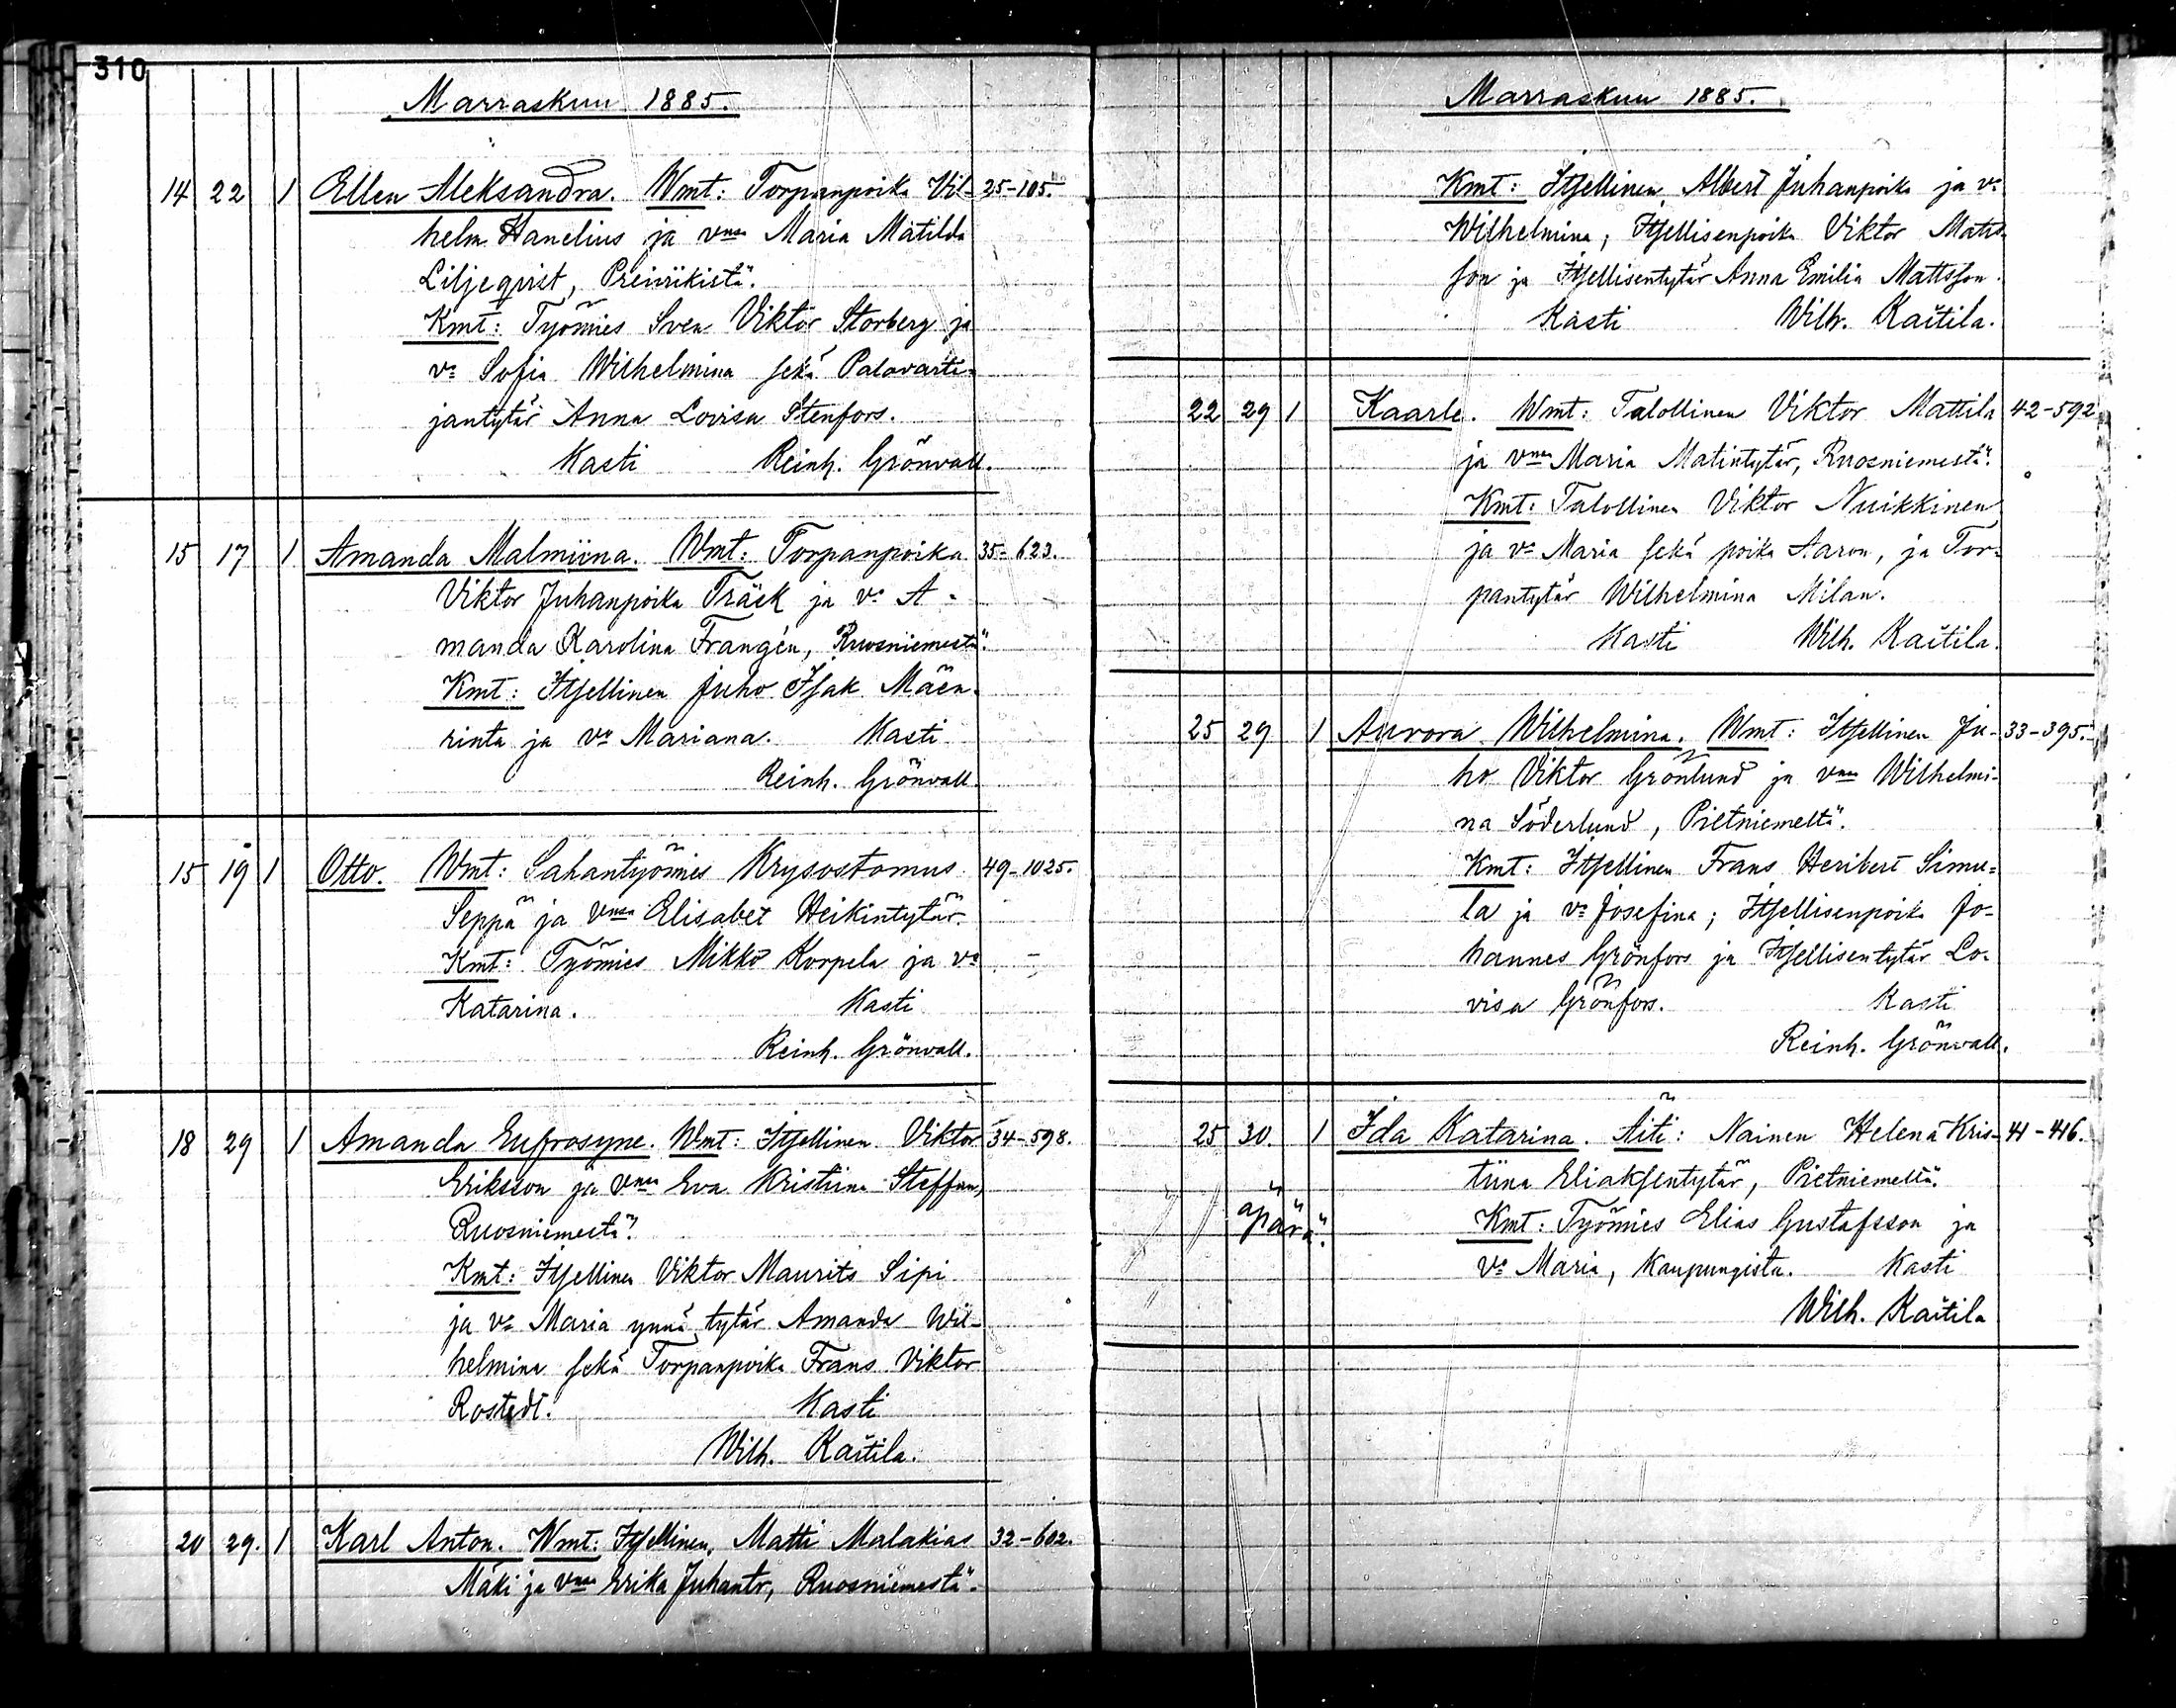 310
Marraskuu 1885.
14 22 1 Ellen Aleksandra. Wmt: Torpanpoika Vil- 25-105.
helm Hanelius ja vmsa Maria Matilda
Liljeqvist, Preiviikistä.
Kmt: Työmies Sven Viktor Storberg ja
vo Sofia Wilhelmina sekä Palovarti-
jantytär Anna Lovisa Stenfors.
Kasti Reinh. Grönvall.
15 17 1 Amanda Malmiina. Wmt: Torpanpoika 35-623.
Viktor Juhanpoika Träsk ja vo A-
manda Karolina Frangén, Ruosniemestä.
Kmt: Itsellinen Juho Isak Mäen-
rinta ja vo Mariana. Kasti
Reinh. Grönvall.
15 19 1 Otto. Wmt: Sahantyömies Krysostomus 49-1025.
Seppä ja vmsa Elisabet Heikintytär.
Kmt: Työmies Mikko Korpela ja vo
Katarina. Kasti
Reinh. Grönvall.
18 29 1 Amanda Eufrosyne. Wmt: Itsellinen Viktor 34-598.
Eriksson ja vmsa Eva Kristiina Steffan,
Ruosniemestä.
Kmt: Itsellinen Viktor Maurits Sipi
ja vo Maria ynnä tytär Amanda Wil-
helmina sekä Torpanpoika Frans Viktor
Rostedt. Kasti
Wilh. Kaitila.
20 29. 1 Karl Anton. Wmt: Itsellinen, Matti Malakias 32-602.
Mäki ja vmsa Erika Juhantr, Ruosniemestä.
Marraskuu 1885.
Kmt: Itsellinen, Albert Juhanpoika ja vo
Wilhelmina; Itsellisenpoika Viktor Mats-
son ja Itsellisentytär Anna Emilia Mattsson.
Kasti Wilh. Kaitila.
22 29 1 Kaarle. Wmt: Talollinen Viktor Mattila 42-592
ja vmsa Maria Matintytär, Ruosniemestä.
Kmt: Talollinen Viktor Nuikkinen
ja vo Maria sekä poika Aaron, ja Tor-
pantytär Wilhelmina Milan.
Kasti Wilh. Kaitila.
25 29 1 Aurora Wilhelmina. Wmt: Itsellinen Ju- 33-395.
ho Viktor Grönlund ja vmsa Wilhelmi-
na Söderlund, Pietniemeltä.
Kmt: Itsellinen Frans Heribert Simu-
la ja vo Josefina; Itsellisenpoika Jo-
hannes Grönfors ja Itsellisentytär Lo-
visa Grönfors. Kasti
Reinh. Grönvall.
25 30. 1 Ida Katarina. Äiti: Nainen Helena Kris- 41-416.
tiina Eliaksentytär, Pietniemeltä.
äpärä. Kmt: Työmies Elias Gustafsson ja
vo Maria, Kaupungista. Kasti
Wilh. Kaitila